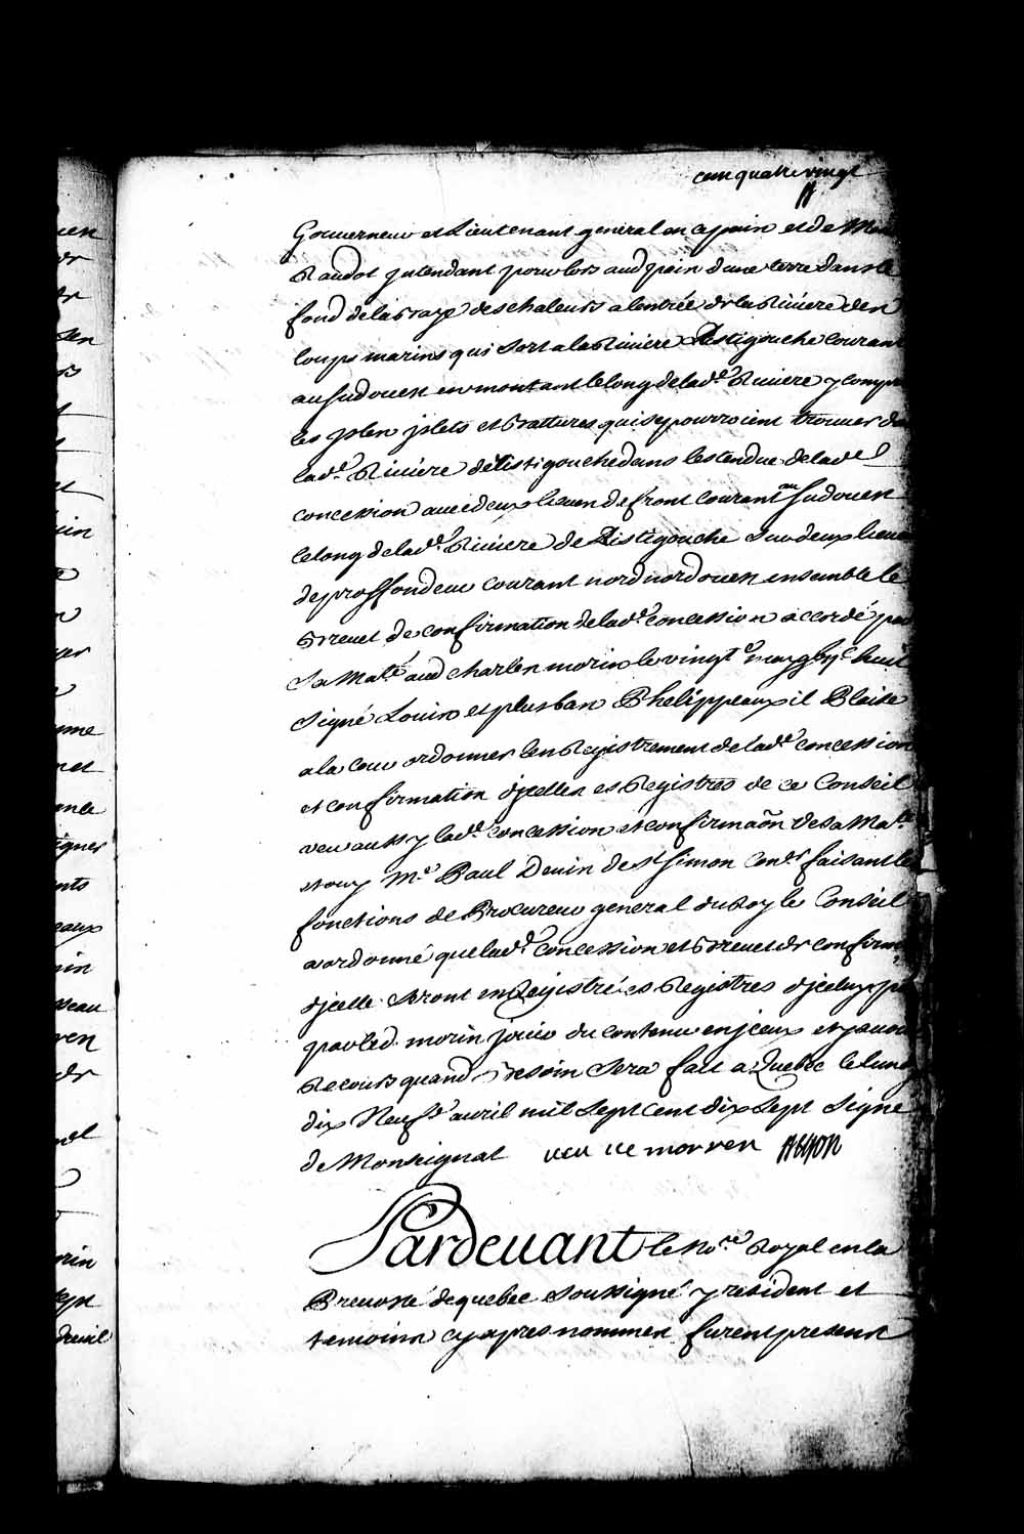 cent quatre vingt
Gouverneur et Lieutenant general en ce pais et de Mon
Raudot jntendant pour lors aud pais d'une terre dans le
fond de la Baye des chaleurs a l'entrée de la Riviere des
loups marins qui sort a la Riviere Ristigouche courant
au sudouest en montant le long de lad.e Riviere y compris
les jsles jslets et Battures qui se pourroient trouver dans
lad.e Riviere de Ristigouche dans l'estendue de lad.e
concession avec deux lieues de front courant au sudouest
le long de lad.e Riviere de Ristigouche sur deux lieues
de proffondeur courant nord nordouest ensemble le
Brevet de confirmation de lad.e concession accordé par
Sa Ma.té aud Charles morin le vingt may huit
Signé Louis et plus bas Phelippeaux il Plaise
a la cour ordonner l'enRegistrement de lad.e concession
et confirmation d'jcelles es Registres de ce Conseil
veu aussy lad.e concession et confirmaôn de sa Ma.té
et ouy M.e Paul Denis de S.t Simon Con.er faisant les
fonctions de Procureur general du Roy le Conseil
a ordonné que lad.e concession et Brevet de confirm
d'jcelle seront enRegistrés es Registres d'jceluy p
par led. morin jouir du contenu en jceux et y avoir
Recours quand Besoin sera fait a Quebec le lundy
dix Neuf.e avril mil sept cent dix sept Signe
de Monseignat
Pardevant le No.re Royal en la
Prevosté de quebec soussigné y resident et
temoins cy apres nommez furent presens
uin
eaux
veau